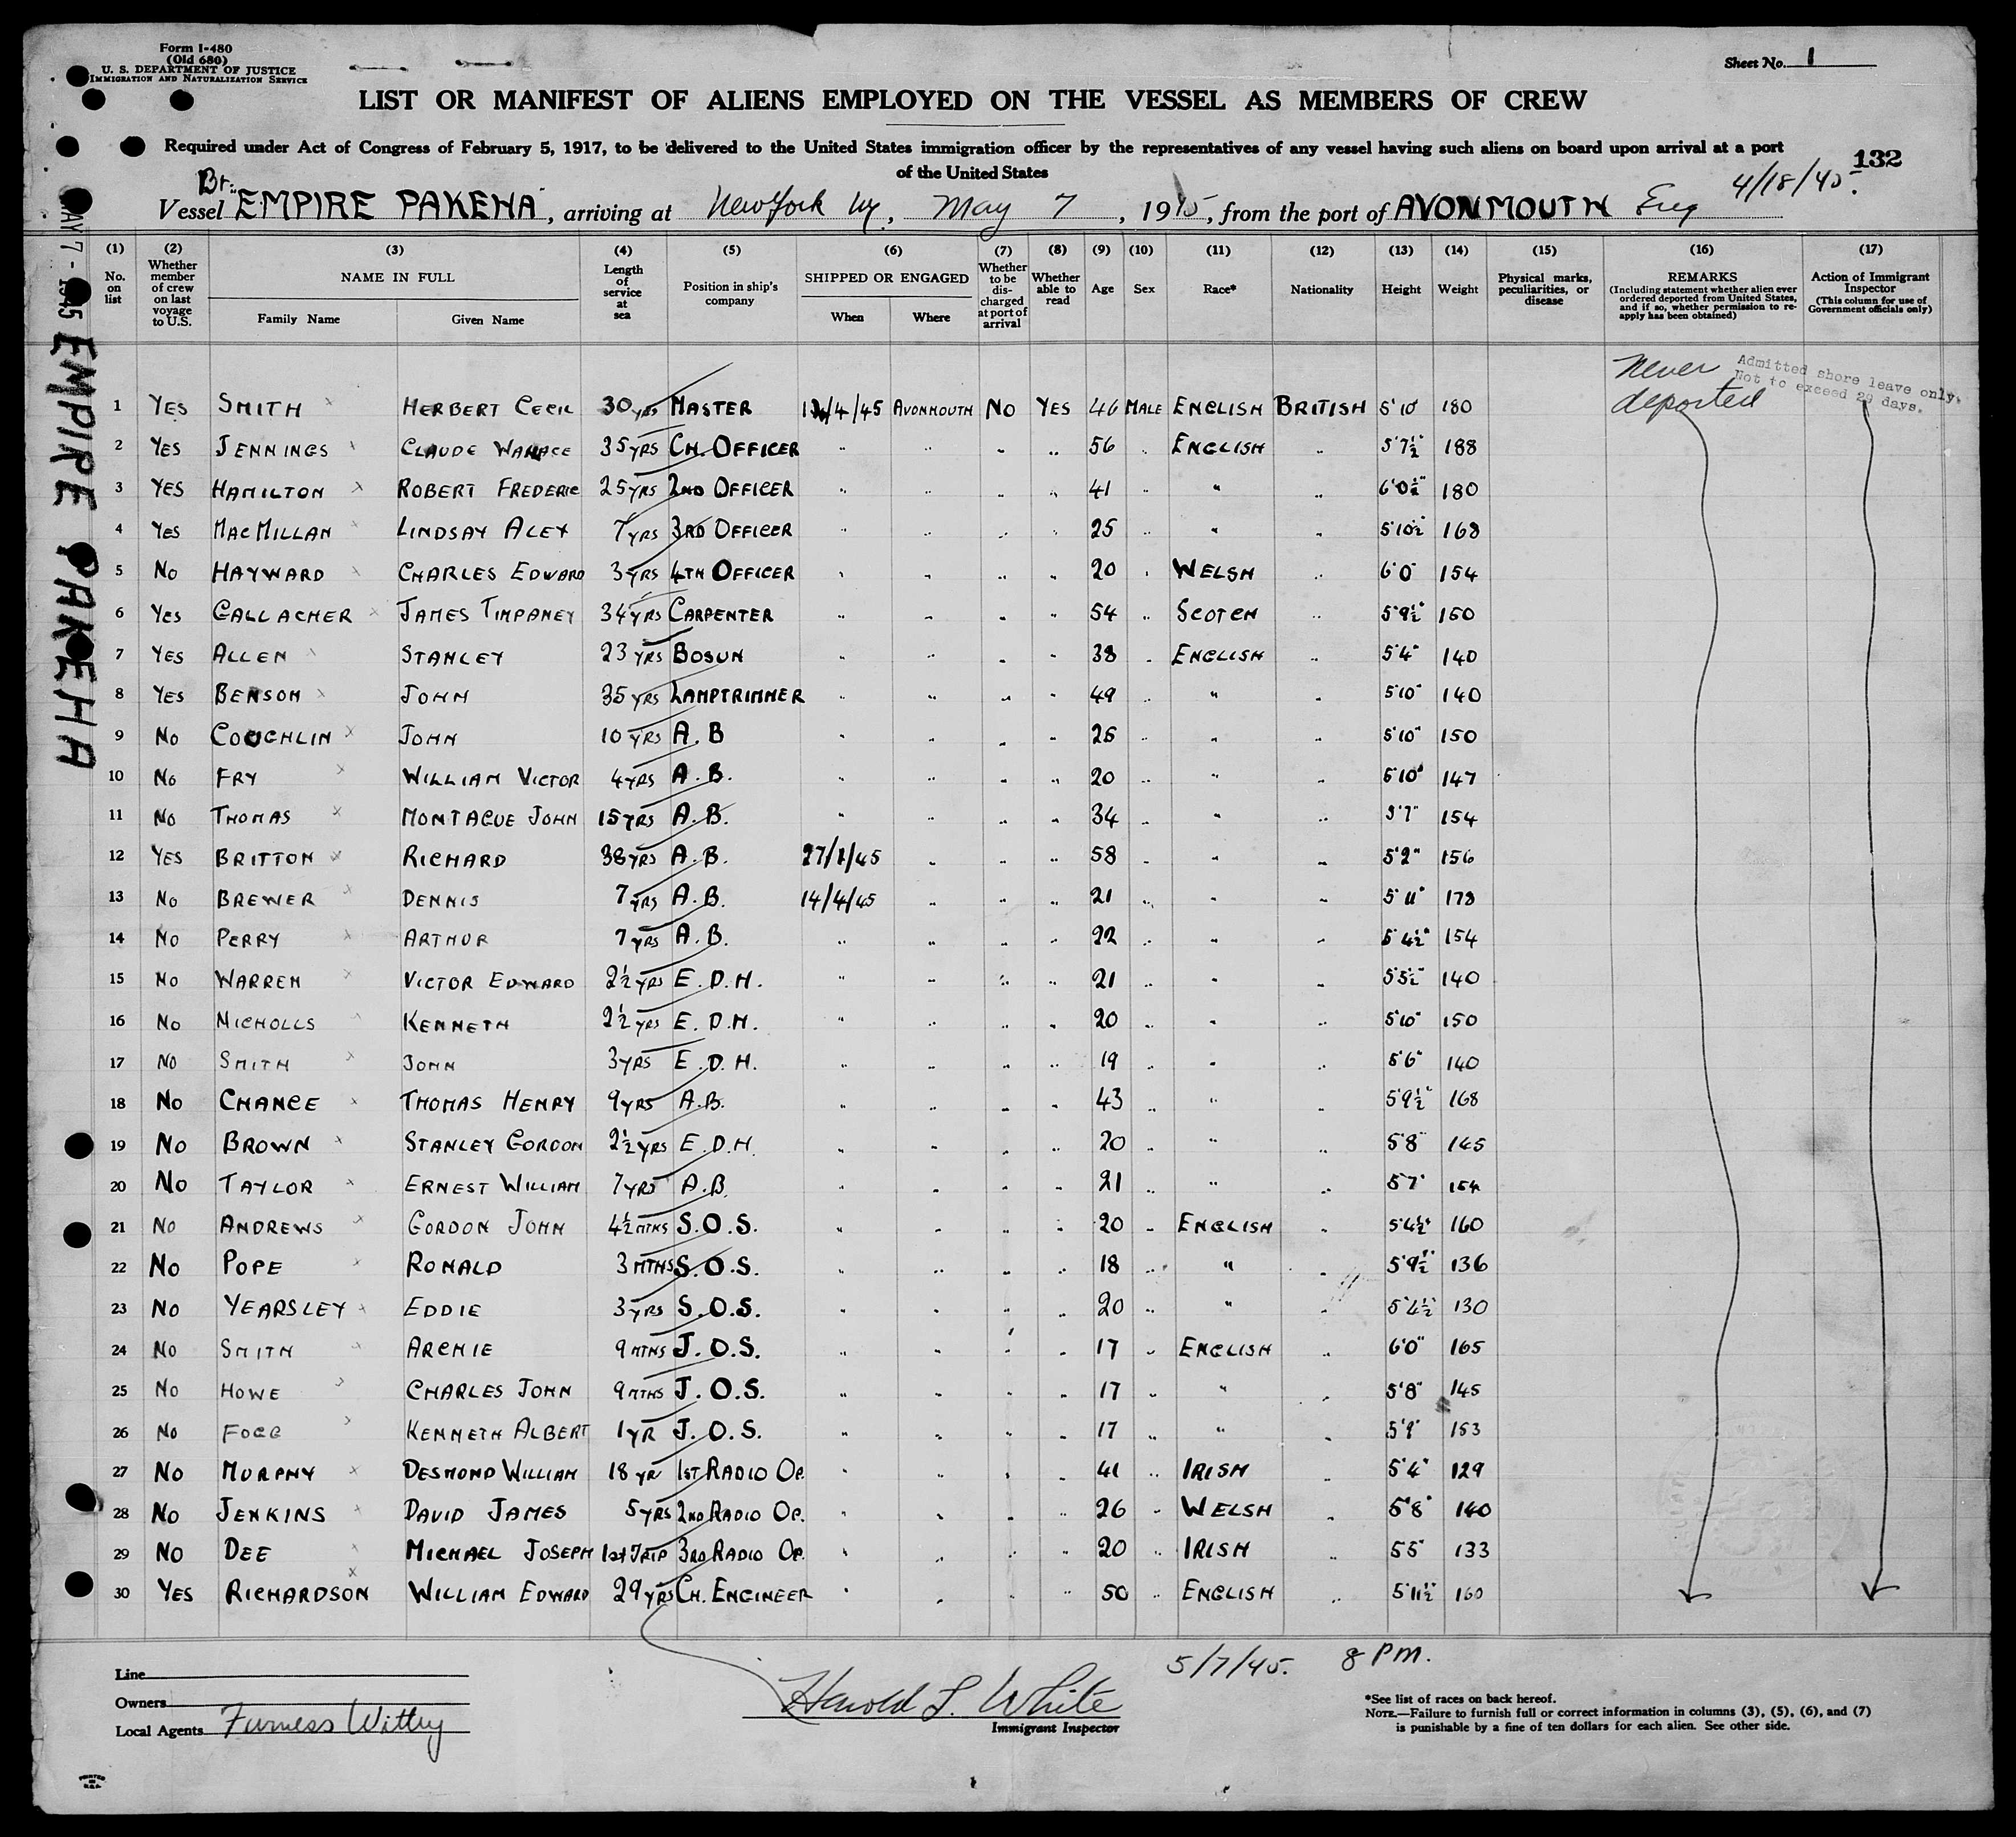 Form I-480
(Old 680)
U. S. DEPARTMENT OF JUSTICE
IMMIGRATION AND NATURALIZATION SERVICE
Sheet No. 1
LIST OR MANIFEST OF ALIENS EMPLOYED ON THE VESSEL AS MEMBERS OF CREW
Required under Act of Congress of February 5, 1917, to be delivered to the United States immigration officer by the representatives of any vessel having such aliens on board upon arrival at a port
of the United States
132
4/18/45.
Vessel Br. "EMPIRE PAKEHA", arriving at New York Ny, May 7, 1945, from the port of AVONMOUTH Eng
MAY 7 - 1945 EMPIRE PAKEHA
(1) (2) (3) (4) (5) (6) (7) (8) (9) (10) (11) (12) (13) (14) (15) (16) (17)
No. on list
Whether member of crew on last voyage to U.S.
NAME IN FULL
Family Name Given Name
Length of service at sea
Position in ship's company
SHIPPED OR ENGAGED
When Where
Whether to be discharged at port of arrival
Whether able to read
Age
Sex
Race*
Nationality
Height
Weight
Physical marks, peculiarities, or disease
REMARKS
(Including statement whether alien ever ordered deported from United States, and if so, whether permission to re-apply has been obtained)
Action of Immigrant Inspector
(This column for use of Government officials only)
never deported
Admitted shore leave only.
Not to exceed 29 days.
1 YES SMITH HERBERT CECIL 30 YRS MASTER /4/45 AVONMOUTH NO YES 46 MALE ENGLISH BRITISH 5'10" 180
2 YES JENNINGS CLAUDE WALLACE 35 YRS CH. OFFICER " " " " 56 " ENGLISH " 5'7½" 188
3 YES HAMILTON ROBERT FREDERIC 25 YRS 2ND OFFICER " " " " 41 " " " 6'0½" 180
4 YES MACMILLAN LINDSAY ALEX 7 YRS 3RD OFFICER " " " " 25 " " " 5'10½" 168
5 NO HAYWARD CHARLES EDWARD 3 YRS 4TH OFFICER " " " " 20 " WELSH " 6'0" 154
6 YES GALLACHER JAMES TIMPANEY 34 YRS CARPENTER " " " " 54 " SCOTCH " 5'9½" 150
7 YES ALLEN STANLEY 23 YRS BOSUN " " " " 38 " ENGLISH " 5'4" 140
8 YES BENSON JOHN 35 YRS LAMPTRIMMER " " " " 49 " " " 5'10" 140
9 NO COUGHLIN JOHN 10 YRS A.B " " " " 26 " " " 5'10" 150
10 NO FRY WILLIAM VICTOR 4 YRS A.B. " " " " 20 " " " 5'10" 147
11 NO THOMAS MONTAGUE JOHN 15 YRS A.B. " " " " 34 " " " 5'7" 154
12 YES BRITTON RICHARD 38 YRS A.B. 27/1/45 " " " 58 " " " 5'2" 156
13 NO BREWER DENNIS 7 YRS A.B. 14/4/45 " " " 21 " " " 5'11" 178
14 NO PERRY ARTHUR 7 YRS A.B. " " " " 22 " " " 5'4½" 154
15 NO WARREN VICTOR EDWARD 2½ YRS E.D.H. " " " " 21 " " " 5'5½" 140
16 NO NICHOLLS KENNETH 2½ YRS E.D.H. " " " " 20 " " " 5'10" 150
17 NO SMITH JOHN 3 YRS E.D.H. " " " " 19 " " " 5'6" 140
18 NO CHANCE THOMAS HENRY 9 YRS A.B. " " " " 43 " " " 5'9½" 168
19 NO BROWN STANLEY GORDON 2½ YRS E.D.H " " " " 20 " " " 5'8" 145
20 NO TAYLOR ERNEST WILLIAM 7 YRS A.B. " " " " 21 " " " 5'7" 154
21 NO ANDREWS GORDON JOHN 4½ MTHS S.O.S. " " " " 20 " ENGLISH " 5'4½" 160
22 NO POPE RONALD 3 MTHS S.O.S. " " " " 18 " " " 5'9½" 136
23 NO YEARSLEY EDDIE 3 YRS S.O.S. " " " " 20 " " " 5'4½" 130
24 NO SMITH ARCHIE 9 MTHS J.O.S. " " " " 17 " ENGLISH " 6'0" 165
25 NO HOWE CHARLES JOHN 9 MTHS J.O.S. " " " " 17 " " " 5'8" 145
26 NO FOGG KENNETH ALBERT 1 YR J.O.S. " " " " 17 " " " 5'9" 153
27 NO MURPHY DESMOND WILLIAM 18 YR 1ST RADIO OP. " " " " 41 " IRISH " 5'4" 129
28 NO JENKINS DAVID JAMES 5 YRS 2ND RADIO OP. " " " " 26 " WELSH " 5'8" 140
29 NO DEE MICHAEL JOSEPH 1st TRIP 3RD RADIO OP. " " " " 20 " IRISH " 5'5" 133
30 YES RICHARDSON WILLIAM EDWARD 29 YRS CH. ENGINEER " " " " 50 " ENGLISH " 5'11½" 160
5/7/45. 8 PM.
Line
Owners
Local Agents Furness Withy
Harold L. White
Immigrant Inspector
*See list of races on back hereof.
NOTE.—Failure to furnish full or correct information in columns (3), (5), (6), and (7)
is punishable by a fine of ten dollars for each alien. See other side.
PRINTED IN U.S.A.